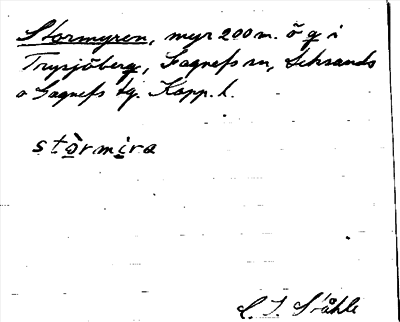 Stormyren, myr 200 m. ö g i
Trysjöberg, Gagnefs sn, Leksands
o Gagnefs tg. Kopp. l.
stòrmira
C. I. Ståhle